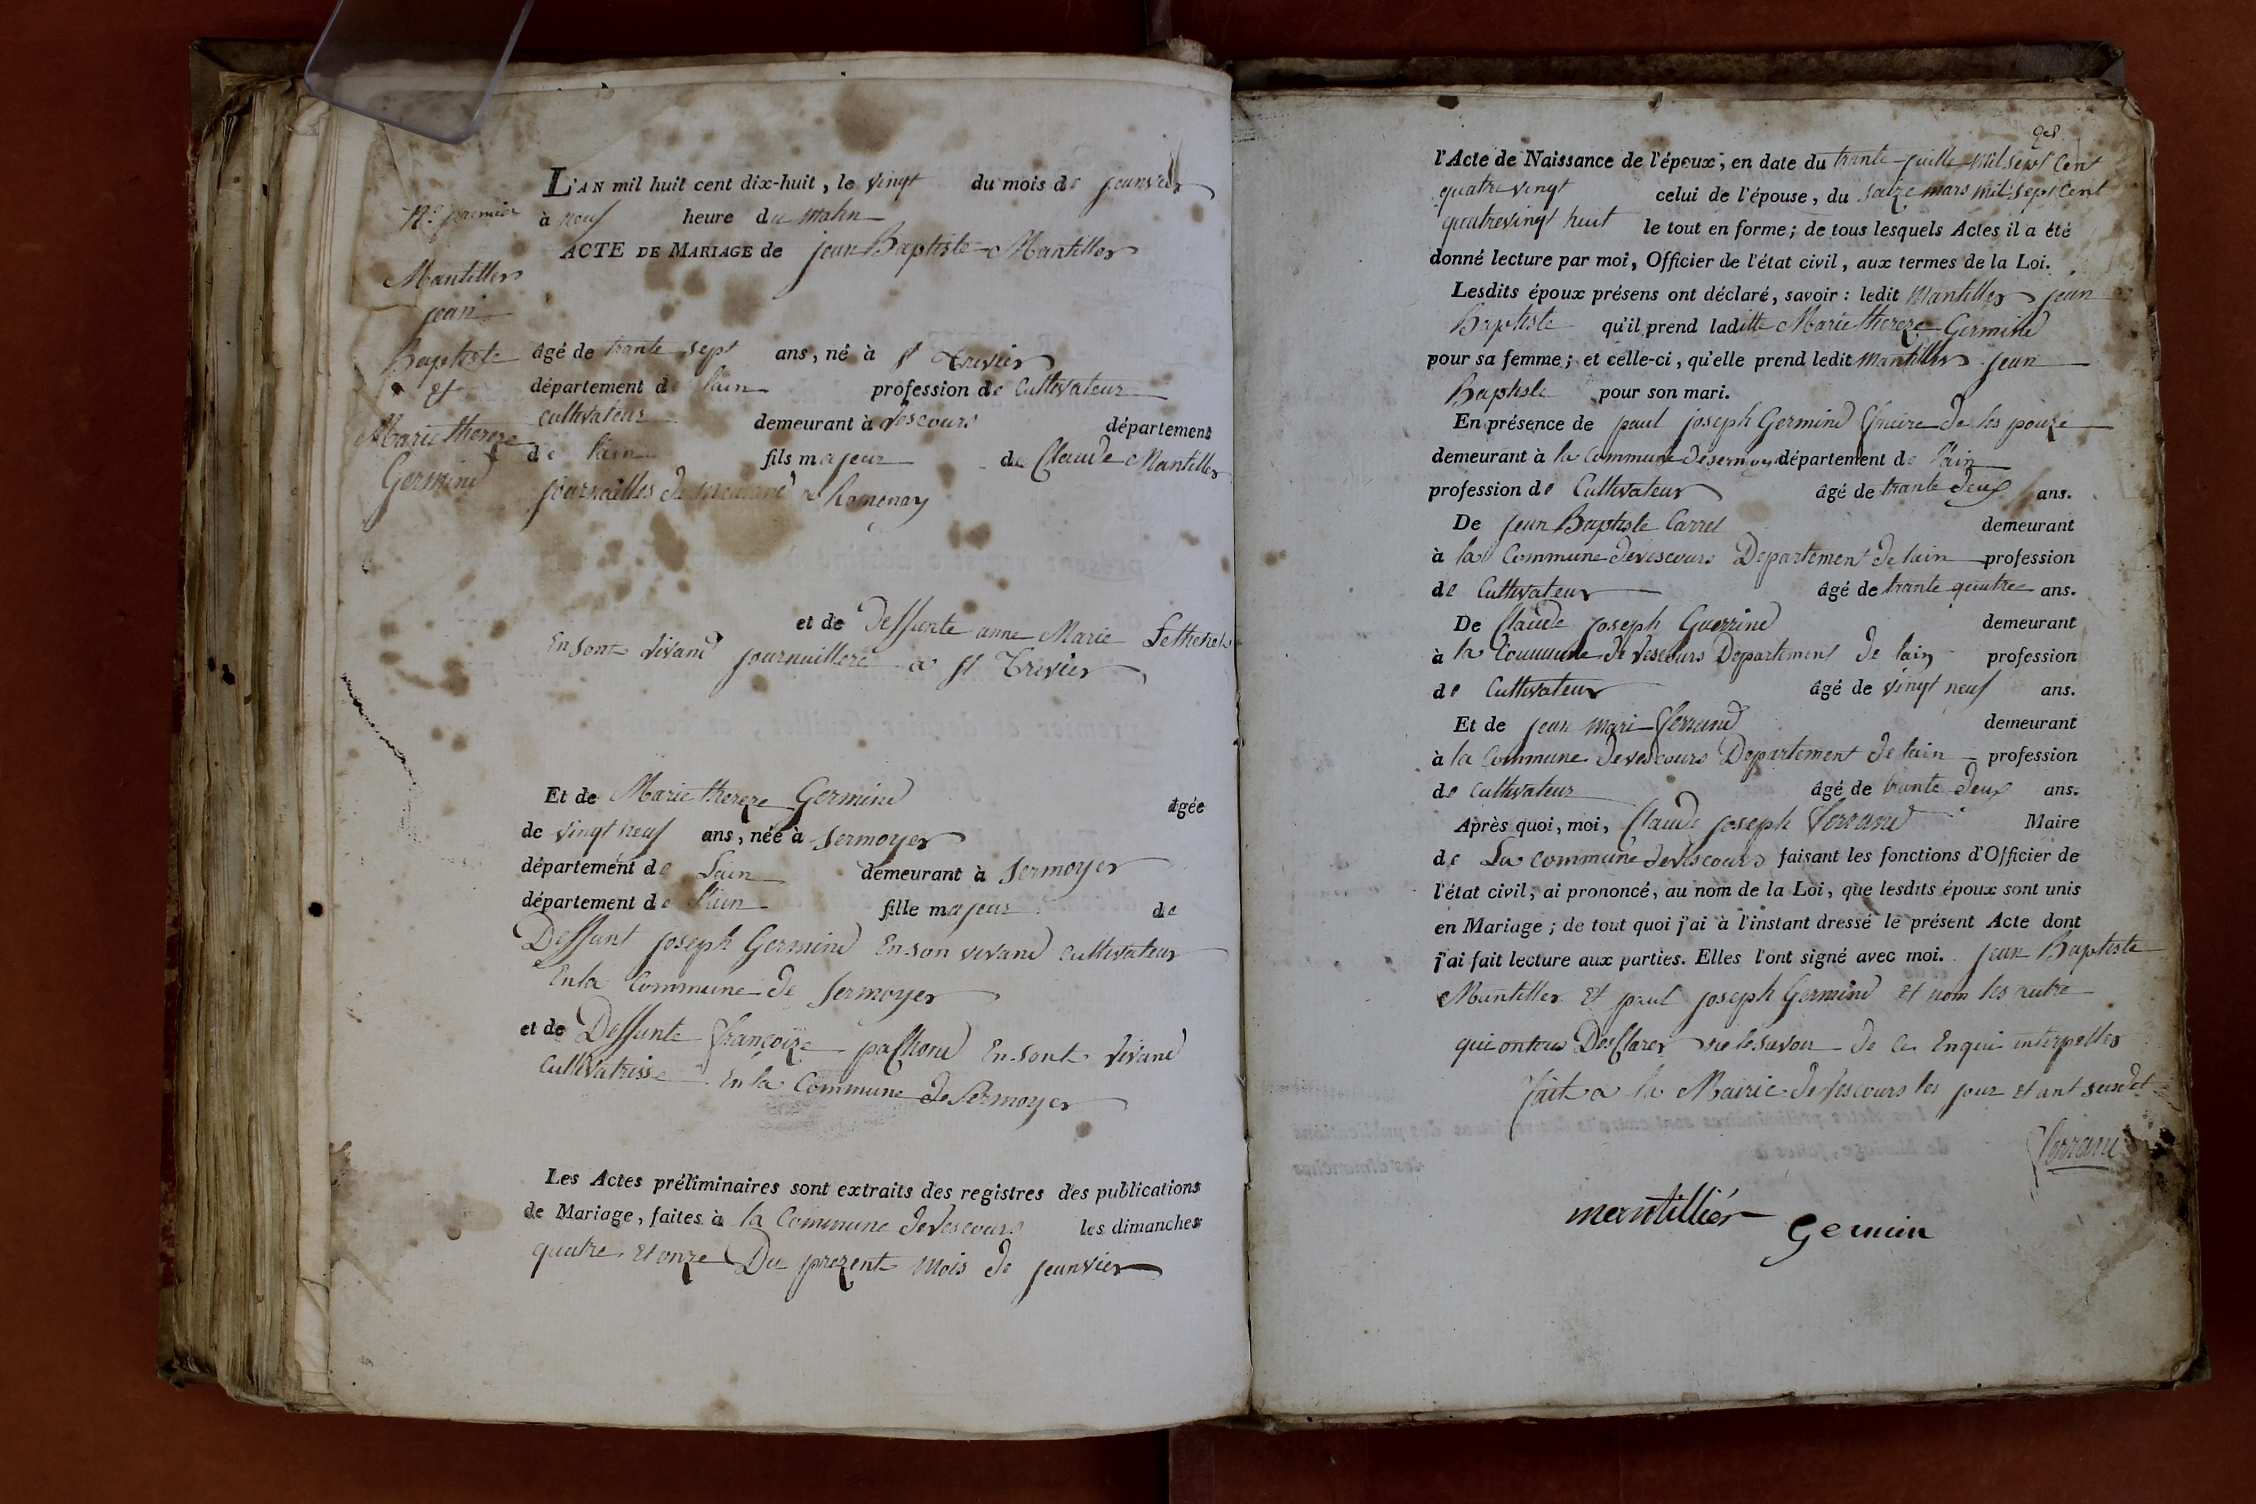 L'AN mil huit cent dix-huit, le vingt du mois de jeanvier
N.º premier à neuf heure du matin
ACTE DE MARIAGE de jean Baptiste Mantiller
Mantiller
jean
Baptiste
et
Marie thereze
Germind
âgé de trante sept ans, né à st trivier
département de lain profession de Cultivateur
cultivateur demeurant à Vescours département
de lain fils majeur de Claude Mantiller
a Romenay
et de Deffunte anne Marie
En sont vivand journaillere a st Trivier
Et de Marie thereze Germind âgée
de vingt neuf ans, née à Sermoyer
département de Lain demeurant à Sermoyer
département de Lain fille majeur de
Deffunt joseph Germind En son vivand cultivateur
En la Commune de Sermoyer
et de Deffunte françoize pachond En sont vivand
Cultivatrisse En la Commune de Sermoyer
Les Actes préliminaires sont extraits des registres des publications
de Mariage, faites à la Commune de Vescours les dimanches
quatre et onze Du prezent mois de jeanvier
l'Acte de Naissance de l'époux, en date du trante juille mil sept Cent
quatre vingt celui de l'épouse, du saize mars mil sept Cent
quatrevingt huit le tout en forme; de tous lesquels Actes il a été
donné lecture par moi, Officier de l'état civil, aux termes de la Loi.
Lesdits époux présens ont déclaré, savoir: ledit Mantiller jean
Baptiste qu'il prend laditte Marie thereze Germind
pour sa femme; et celle-ci, qu'elle prend ledit Mantiller jean
Baptiste pour son mari.
En présence de paul joseph Germind fraire de les pouze
demeurant à la Commune de sermoyer département de l'ain
profession de Cultivateur âgé de trante deux ans.
De jean Baptiste Carrel demeurant
à la Commune de vescours Departement de lain profession
de Cultivateur âgé de trante quatre ans.
De Claude joseph Guerrind demeurant
à la Commune de Vescours Departement de lain profession
de Cultivateur âgé de vingt neuf ans.
Et de jean mari ferrand demeurant
à la Commune de vescours Departement de lain profession
de Cultivateur âgé de trante deux ans.
Après quoi, moi, Claude joseph ferrand Maire
de La commune de vescours faisant les fonctions d'Officier de
l'état civil, ai prononcé, au nom de la Loi, que lesdits époux sont unis
en Mariage; de tout quoi j'ai à l'instant dressé le présent Acte dont
j'ai fait lecture aux parties. Elles l'ont signé avec moi. jean Baptiste
Mantiller et paul joseph Germind et nom les autre
qui ontous Desclarer ne le savoir de ce Enqui interpeller
fait a la Mairie de Vescours les jour et ant susdit
ferrand
mantillier
Germin